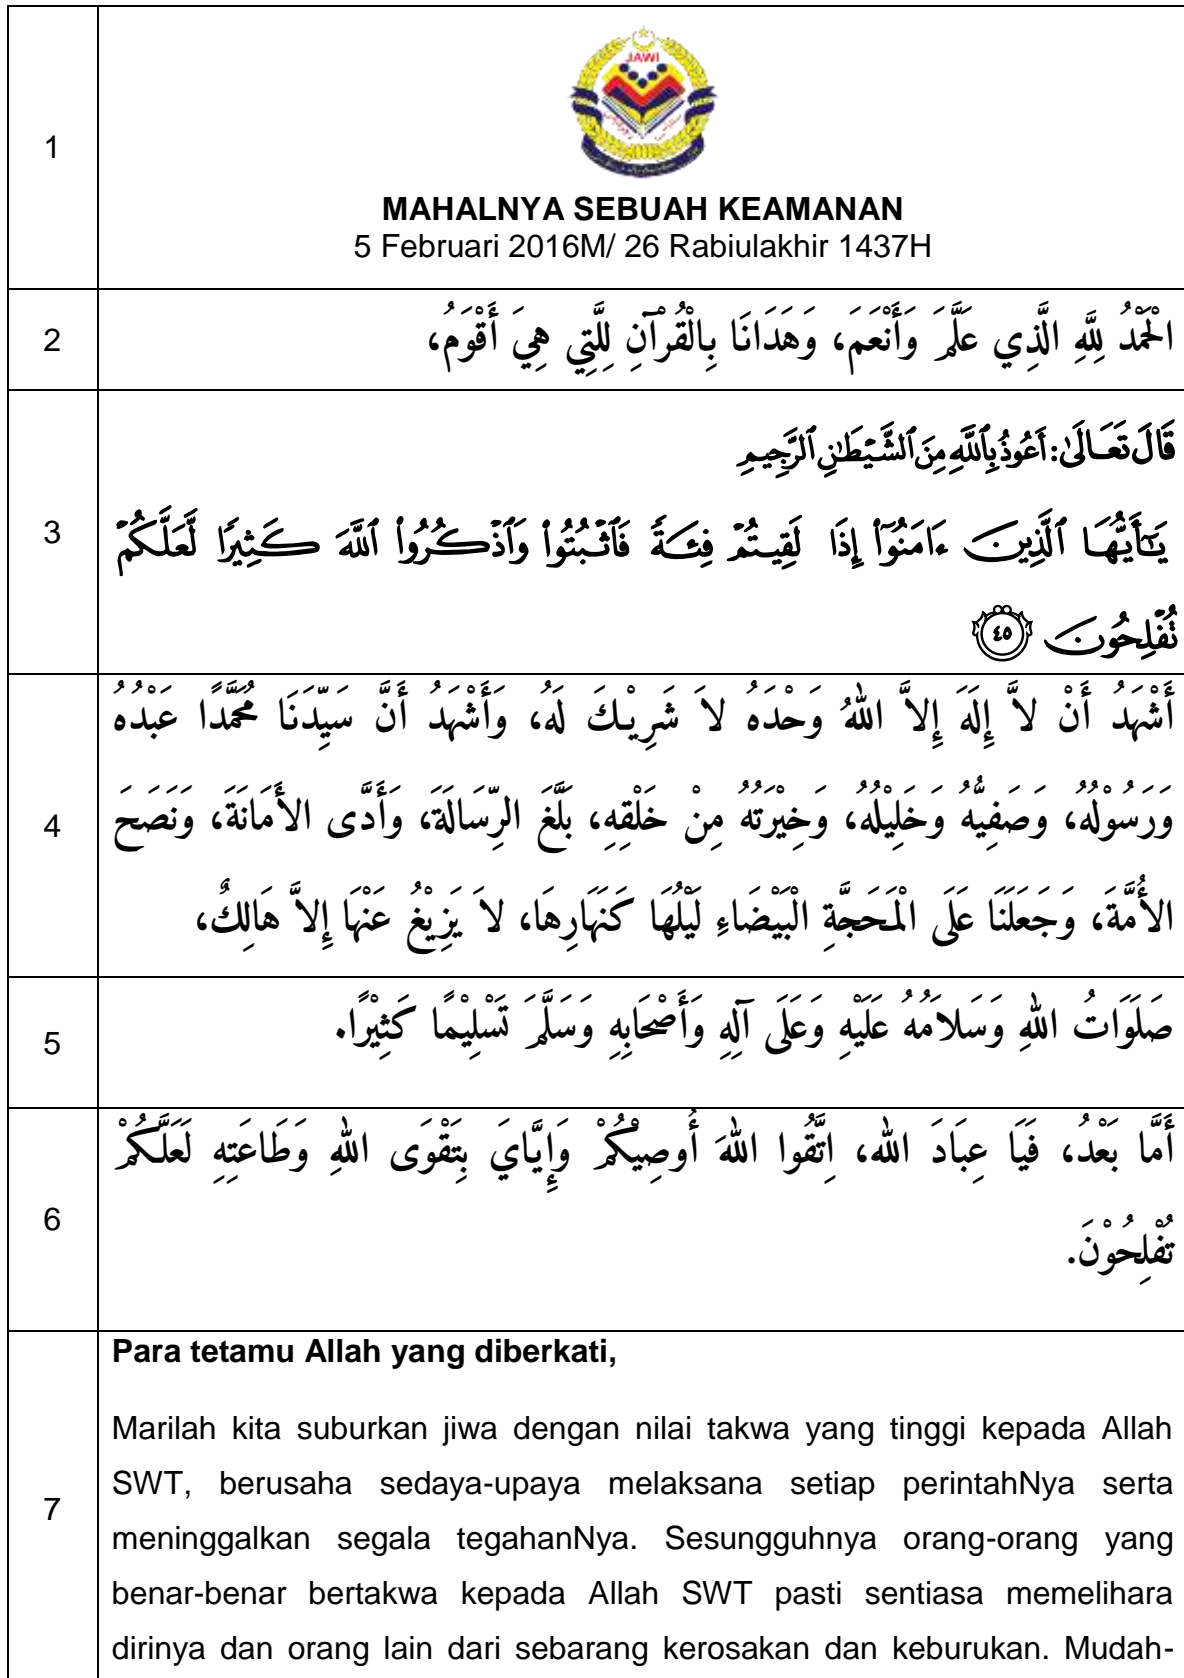 JAWI
1
MAHALNYA SEBUAH KEAMANAN
5 Februari 2016M/ 26 Rabiulakhir 1437H
2
الْحَمْدُ لِلَّهِ الَّذِي عَلَّمَ وَأَنْعَمَ، وَهَدَانَا بِالْقُرْآنِ لِلَّتِي هِيَ أَقْوَمُ،
3
قَالَ تَعَالَىٰ: أَعُوذُ بِٱللَّهِ مِنَ ٱلشَّيْطَٰنِ ٱلرَّجِيمِ
يَٰٓأَيُّهَا ٱلَّذِينَ ءَامَنُوٓا۟ إِذَا لَقِيتُمْ فِئَةً فَٱثْبُتُوا۟ وَٱذْكُرُوا۟ ٱللَّهَ كَثِيرًا لَّعَلَّكُمْ
تُفْلِحُونَ ٤٥
4
أَشْهَدُ أَنْ لاَّ إِلَهَ إِلاَّ اللهُ وَحْدَهُ لاَ شَرِيْكَ لَهُ، وَأَشْهَدُ أَنَّ سَيِّدَنَا مُحَمَّدًا عَبْدُهُ
وَرَسُوْلُهُ، وَصَفِيُّهُ وَخَلِيْلُهُ، وَخِيْرَتُهُ مِنْ خَلْقِهِ، بَلَّغَ الرِّسَالَةَ، وَأَدَّى الأَمَانَةَ، وَنَصَحَ
الأُمَّةَ، وَجَعَلَنَا عَلَى الْمَحَجَّةِ الْبَيْضَاءِ لَيْلُهَا كَنَهَارِهَا، لاَ يَزِيْغُ عَنْهَا إِلاَّ هَالِكٌ،
5
صَلَوَاتُ اللهِ وَسَلاَمُهُ عَلَيْهِ وَعَلَى آلِهِ وَأَصْحَابِهِ وَسَلَّمَ تَسْلِيْمًا كَثِيْرًا.
6
أَمَّا بَعْدُ، فَيَا عِبَادَ الله، اِتَّقُوا اللهَ أُوصِيْكُمْ وَإِيَّايَ بِتَقْوَى اللهِ وَطَاعَتِهِ لَعَلَّكُمْ
تُفْلِحُوْنَ.
7
Para tetamu Allah yang diberkati,
Marilah kita suburkan jiwa dengan nilai takwa yang tinggi kepada Allah
SWT, berusaha sedaya-upaya melaksana setiap perintahNya serta
meninggalkan segala tegahanNya. Sesungguhnya orang-orang yang
benar-benar bertakwa kepada Allah SWT pasti sentiasa memelihara
dirinya dan orang lain dari sebarang kerosakan dan keburukan. Mudah-